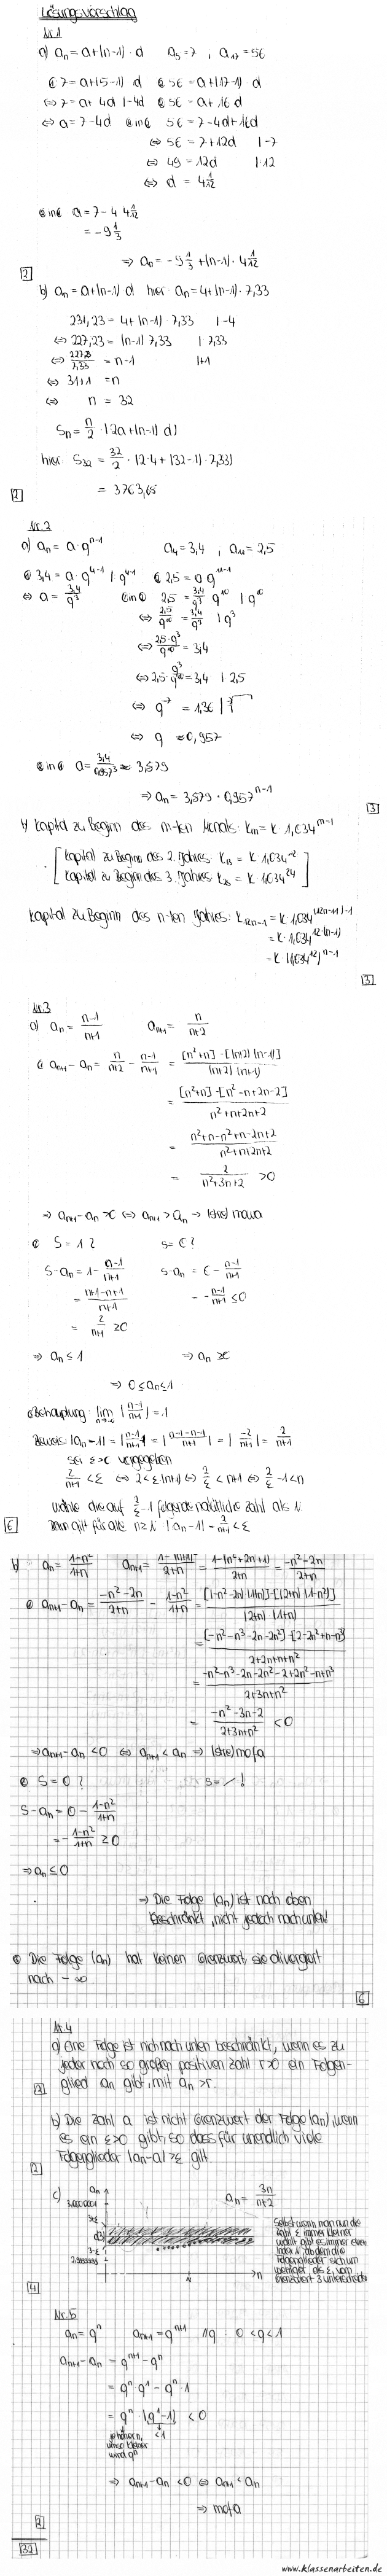 Lösungsvorschlag
Nr.1
a) an = a+(n-1)·d    a5=7 , a17=56
① 7=a+(5-1)·d   ② 56=a+(17-1)·d
⇔ 7=a+4d |-4d   ② 56=a+16d
⇔ a=7-4d   ① in ②   56=7-4d+16d
⇔ 56=7+12d |-7
⇔ 49=12d |:12
⇔ d=4 1/12
in ① a=7-4·4 1/12
= -9 1/3
⇒ an=-9 1/3+(n-1)·4 1/12
2
b) an=a+(n-1)·d hier: an=4+(n-1)·7,33
231,23=4+(n-1)·7,33 |-4
⇔ 227,23=(n-1)·7,33 |:7,33
⇔ 227,23/7,33 = n-1 |+1
⇔ 31+1 =n
⇔ n = 32
Sn=n/2·(2a+(n-1)·d)
hier: S32=32/2·(2·4+(32-1)·7,33)
= 3763,65
2
Nr.2
a) an=a·q^(n-1)    a4=3,4 , a11=2,5
① 3,4=a·q^(4-1) |:q^(4-1)   ② 2,5=a·q^(11-1)
⇔ a=3,4/q³   ① in ② 2,5=3,4/q³·q^10 |:q^10
⇔ 2,5/q^10=3,4/q³ |·q³
⇔ 2,5·q³/q^10=3,4
⇔ 2,5·q³/q^10=3,4 |:2,5
⇔ q^-7=1,36
⇔ q≈0,957
in ① a=3,4/0,957³≈3,879
⇒ an=3,879·0,957^(n-1)
3
b) Kapital zu Beginn des m-ten Monats: Km=K·1,034^(m-1)
[Kapital zu Beginn des 2. Jahres: K13=K·1,034^12
Kapital zu Beginn des 3. Jahres: K25=K·1,034^24]
Kapital zu Beginn des n-ten Jahres:
=K·1,034^(12·(n-1))
=K·(1,034^12)^(n-1)
3
Nr.3
a) an=(n-1)/(n+1)    an+1=n/(n+2)
an+1-an=n/(n+2)-(n-1)/(n+1)=([n²+n]-[(n+2)·(n-1)])/((n+2)·(n+1))
=([n²+n]-[n²-n+2n-2])/(n²+n+2n+2)
=(n²+n-n²+n-2n+2)/(n²+n+2n+2)
=2/(n²+3n+2) >0
⇒ an+1-an>0 ⇔ an+1>an → (stre) mowa
S=1?    s=0?
S-an=1-(n-1)/(n+1)    s-an=0-(n-1)/(n+1)
=(n+1-n+1)/(n+1)    =-(n-1)/(n+1)≤0
=2/(n+1) ≥0
⇒ an≤1    ⇒ an≥0
⇒ 0≤an≤1
Behauptung: lim n→∞ |(n-1)/(n+1)|=1
Beweis: |an-1|=|(n-1)/(n+1)-1|=|(n-1-n-1)/(n+1)|=|-2/(n+1)|=2/(n+1)
sei ε>0 vorgegeben
2/(n+1)<ε ⇔ 2<ε·(n+1) ⇔ 2/ε<n+1 ⇔ 2/ε-1<n
Wähle die auf 2/ε-1 folgende natürliche Zahl als N.
Dann gilt für alle n≥N: |an-1|=2/(n+1)<ε
6
b) an=(1-n²)/(1+n)    an+1=(1-(n+1)²)/(2+n)=(1-(n²+2n+1))/(2+n)=(-n²-2n)/(2+n)
an+1-an=(-n²-2n)/(2+n)-(1-n²)/(1+n)=([(-n²-2n)·(1+n)]-[(2+n)·(1-n²)])/((2+n)·(1+n))
=([-n²-n³-2n-2n²]-[2-2n²+n-n³])/(2+2n+n+n²)
=(-n²-n³-2n-2n²-2+2n²-n+n³)/(2+3n+n²)
=(-n²-3n-2)/(2+3n+n²) <0
⇒ an+1-an<0 ⇔ an+1<an ⇒ (stre) mofa
S=0?    s=/!
S-an=0-(1-n²)/(1+n)
=-(1-n²)/(1+n) ≥0
⇒ an≤0
⇒ Die Folge (an) ist nach oben
beschränkt, nicht jedoch nach unten!
Die Folge (an) hat keinen Grenzwert, sie divergiert
nach -∞.
6
Nr.4
a) Eine Folge ist nich nach unten beschränkt, wenn es zu
jeder noch so großen positiven Zahl r>0 ein Folgen-
glied an gibt, mit an>r.
b) Die Zahl a ist nicht Grenzwert der Folge (an), wenn
es ein ε>0 gibt, so dass für unendlich viele
Folgenglieder |an-a|≥ε gilt.
c) an    an=3n/(n+2)
3+ε
3-ε
N n
Selbst wenn man nun die
Zahl ε immer kleiner
wählt gibt es immer einen
Index N, ab dem die
Folgenglieder sich um
weniger als ε, vom
Grenzwert 3 unterscheiden
4
Nr.5
an=q^n    an+1=q^(n+1)    //q: 0<q<1
an+1-an=q^(n+1)-q^n
=q^n·q^1-q^n·1
=q^n·(q^1-1) <0
je höher n, <1
umso kleiner
wird q^n
⇒ an+1-an<0 ⇔ an+1<an
⇒ mofa
2
32
www.klassenarbeiten.de